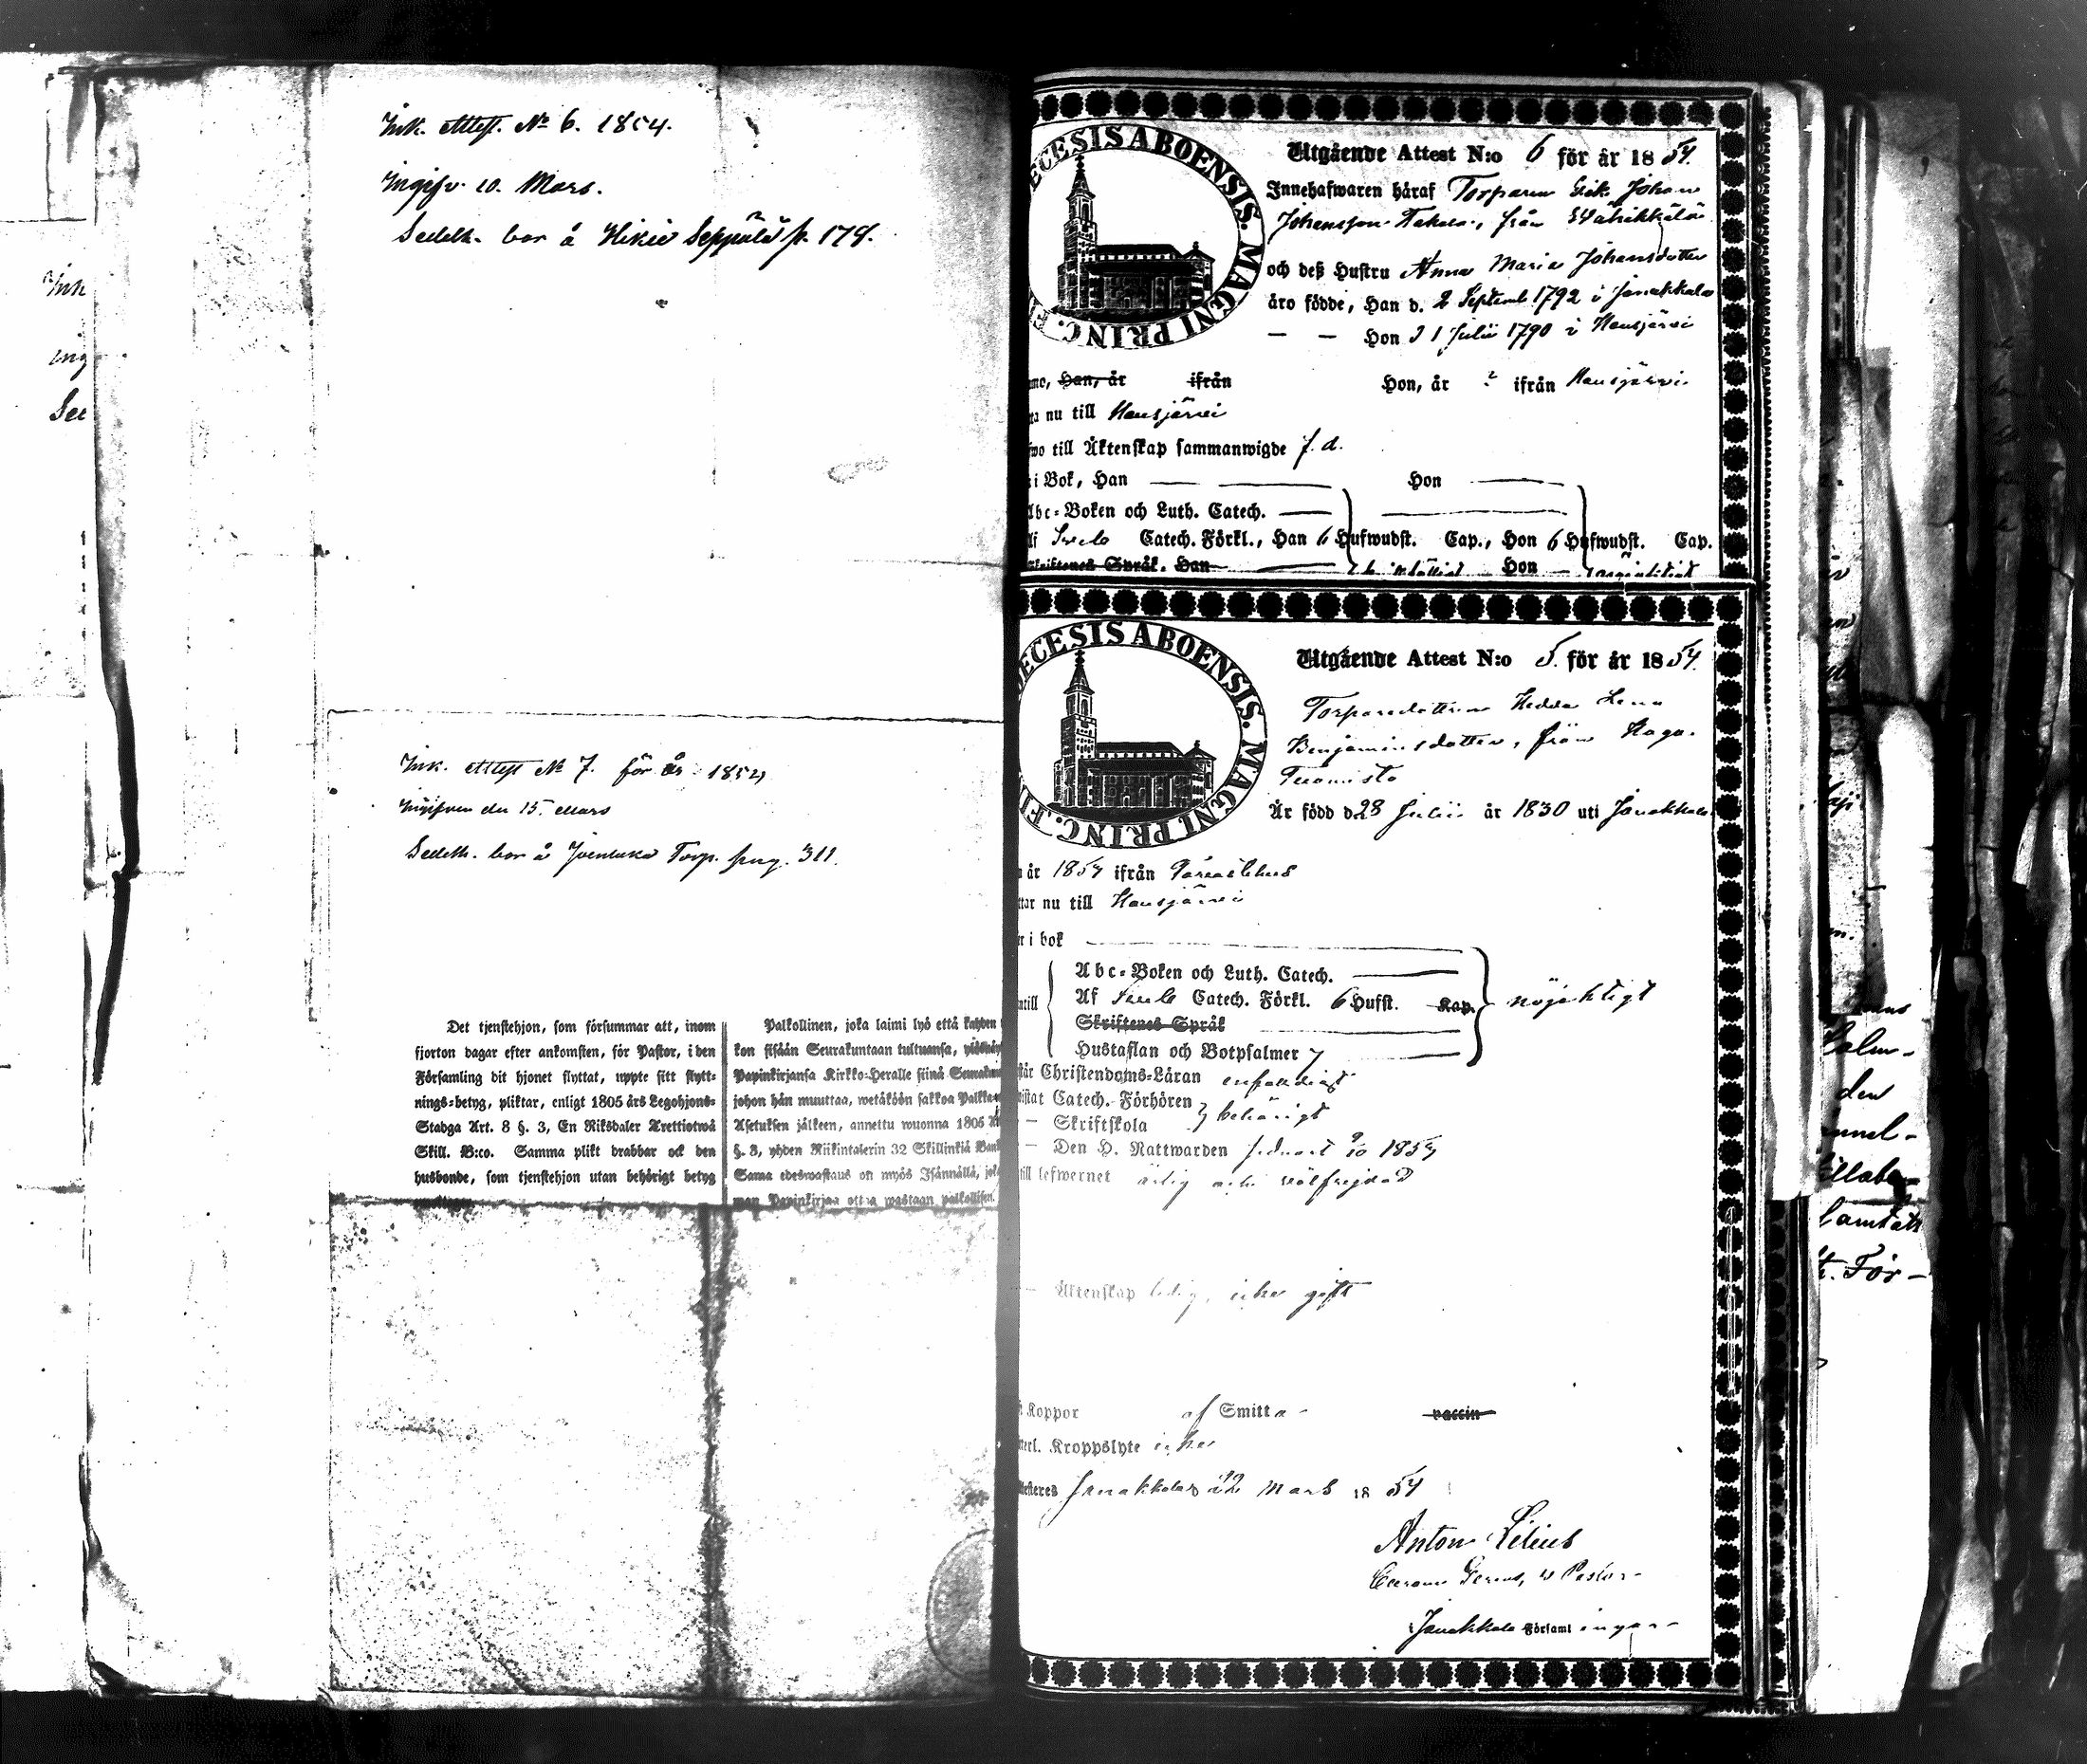 Ink. Attest. No 6. 1854.
Ingifv. 10. Mars.
Sedelh. bor å Hikiä Seppälä p. 179.
Ink. Attest No 7. för år 1854
Ingifven den 15. Mars
Sedelh. bor å Torp. pag. 311.
Det tjenstehjon, som försummar att, inom
fjorton dagar efter ankomsten, för Pastor, i den
Församling dit hjonet flyttat, uppte sitt flytt-
nings-betyg, pliktar, enligt 1805 års Legohjons-
Stadga Art. 8 §. 3, En Riksdaler Trettiotwå
Skill. B:co. Samma plikt drabbar ock den
husbonde, som tjenstehjon utan behörigt betyg
Palkollinen, joka laimi lyö että kahden
kon sisään Seurakuntaan tultuansa,
Papinkirjansa Kirkko-Heralle siinä
johon hän muuttaa, wetäköön sakkoa
Asetuksen jälkeen, annettu wuonna 1805
§. 3, yhden Riikintalerin 32 Skillinkiä
Sama edeswastaus on myös Isännällä,
man Papinkirjaa ottaa wastaan palkollisen.
Ink
ing
Sed
ECESIS ABOENSIS. MAGNI PRINC. F
Utgående Attest N:o 6 för år 1854.
Innehafwaren häraf Torparen Erik Johan
Johansson Takala, från
och deß Hustru Anna Maria Johansdotter
äro födde, Han d. 2 Septemb 1792 i Janakkala
— — Hon d 1 Julii 1790 i Hausjärvi
Han, år ifrån Hon, år ? ifrån Hausjärvi
nu till Hausjärvi
till Äktenskap sammanwigde f. d.
i Bok, Han — Hon —
Abc-Boken och Luth. Catech. —
Af Sveb. Catech. Förkl., Han 6 Hufwudst. Cap., Hon 6 Hufwudst. Cap.
Språk. Han — Hon —
ECESIS ABOENSIS. MAGNI PRINC. FI
Utgående Attest N:o 5. för år 1854.
Torparedottren Hedda Lena
Benjaminsdotter, från Haga.
Tuomisto
Är född d. 28 Julii år 1830 uti Janakkala
år 1854 ifrån Tavastehus
nu till Hausjärvi
i bok
Abc-Boken och Luth. Catech. —
Af Sveb Catech. Förkl. 6 Hufst. Kap. nöjaktigt
Skriftenes Språk
Hustaflan och Botpsalmer 7
Christendoms-Läran enfaldigt
Catech. Förhören
— Skriftskola behörigt
— Den H. Nattwarden sednast 9/10 1854
till lefwernet ärlig och välfrejdad
— Äktenskap ledig, icke gift
Koppor af Smitta vaccin
Kroppslyte icke
Janakkala d 22 Mars 1854
Anton Lilius
Pastor
Janakkala Församlingar